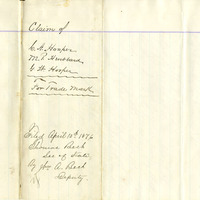 Claim of
C. A. Hooper
M. P. Hubbard
G. H. Hooper
For Trade Mark
Filed April 18th 1876
Thomas Beck
Sec of State
By A. Beck
Deputy